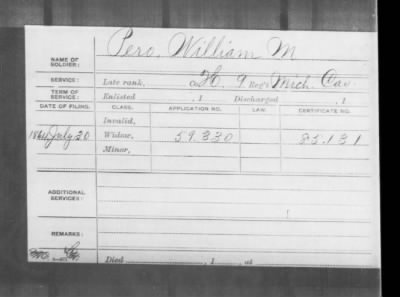 NAME OF SOLDIER: Pero, William M
SERVICE: Late rank, Co. H, 9 Reg't Mich. Cav.
TERM OF SERVICE: Enlisted , 1 Discharged , 1
DATE OF FILING. CLASS. APPLICATION NO. LAW. CERTIFICATE NO.
Invalid,
1864 July 30 Widow, 59.330 35.131
Minor,
ADDITIONAL SERVICES:
REMARKS:
Died , 1 , at